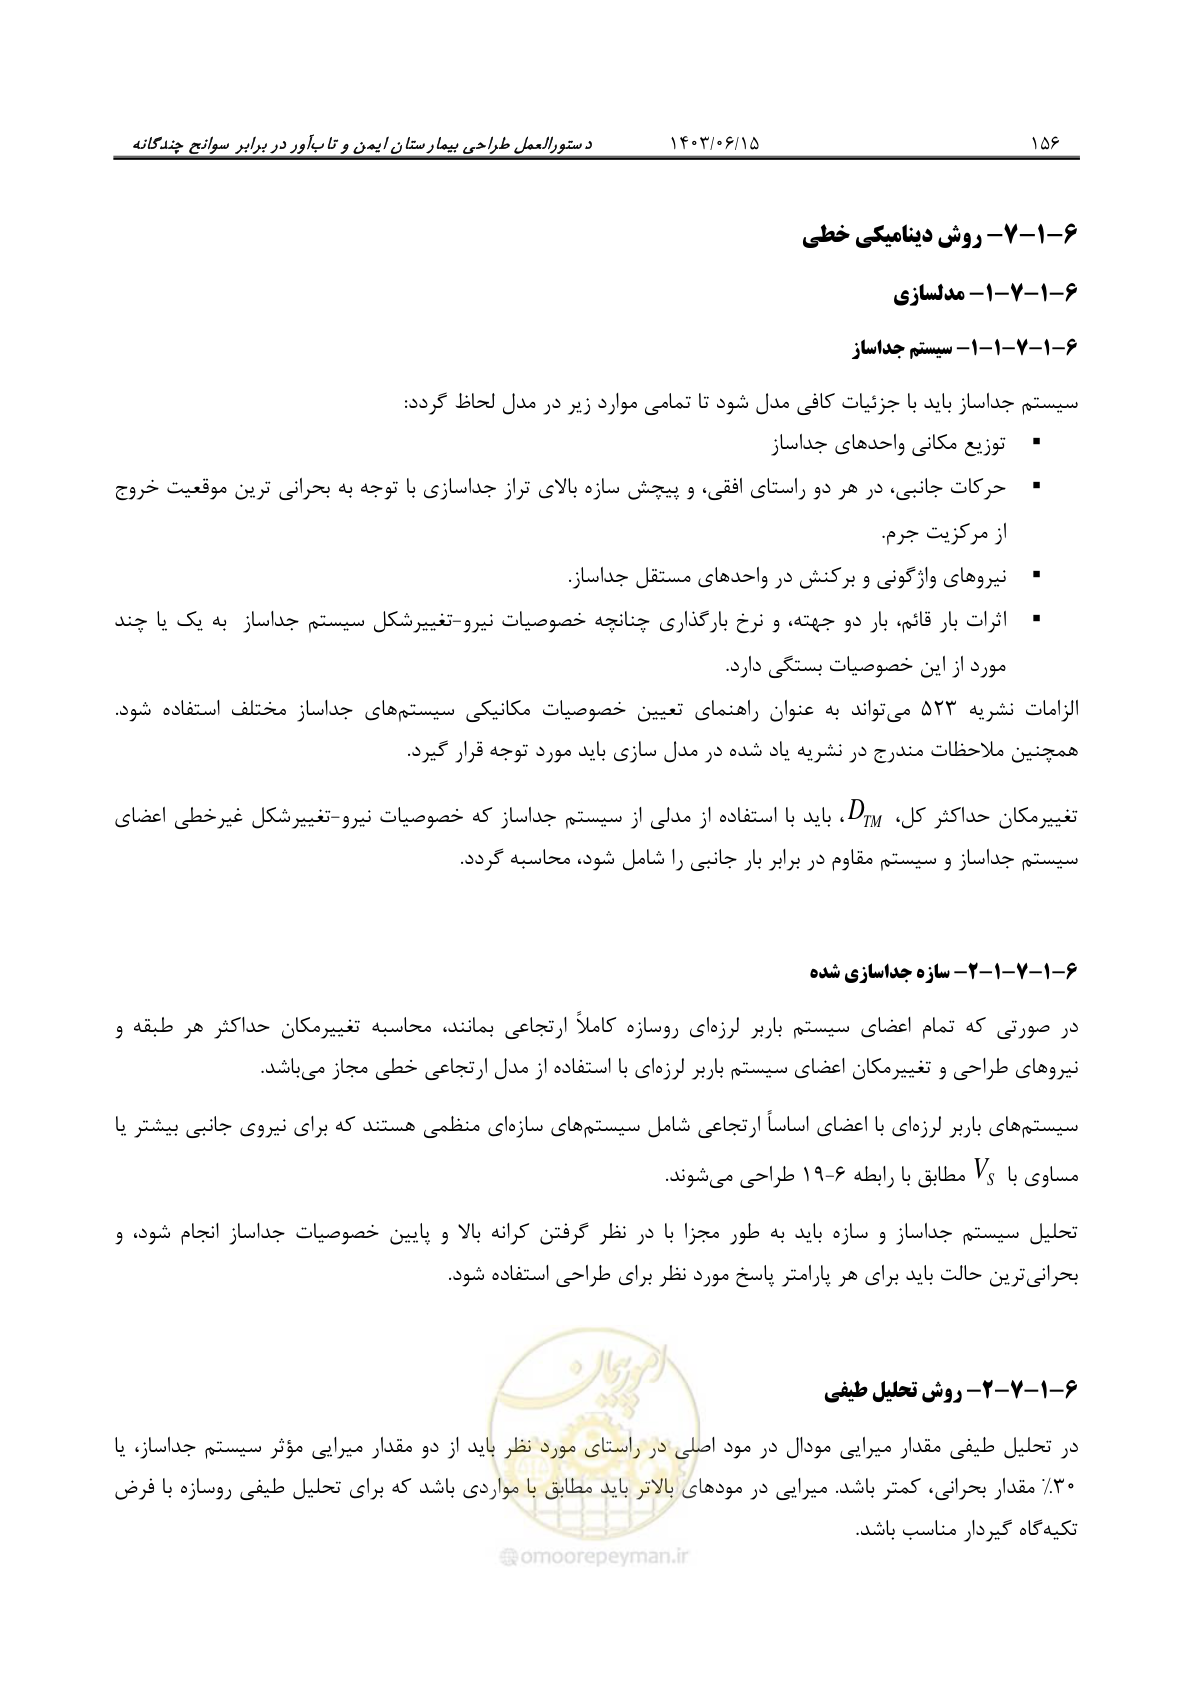 ۱۵۶ ۱۴۰۳/۰۶/۱۵ دستورالعمل طراحی بیمارستان ایمن و تاب‌آور در برابر سوانح چندگانه
۶-۱-۷- روش دینامیکی خطی
۶-۱-۷-۱- مدلسازی
۶-۱-۷-۱-۱- سیستم جداساز
سیستم جداساز باید با جزئیات کافی مدل شود تا تمامی موارد زیر در مدل لحاظ گردد:
▪ توزیع مکانی واحدهای جداساز
▪ حرکات جانبی، در هر دو راستای افقی، و پیچش سازه بالای تراز جداسازی با توجه به بحرانی ترین موقعیت خروج
از مرکزیت جرم.
▪ نیروهای واژگونی و برکنش در واحدهای مستقل جداساز.
▪ اثرات بار قائم، بار دو جهته، و نرخ بارگذاری چنانچه خصوصیات نیرو-تغییرشکل سیستم جداساز به یک یا چند
مورد از این خصوصیات بستگی دارد.
الزامات نشریه ۵۲۳ می‌تواند به عنوان راهنمای تعیین خصوصیات مکانیکی سیستم‌های جداساز مختلف استفاده شود.
همچنین ملاحظات مندرج در نشریه یاد شده در مدل سازی باید مورد توجه قرار گیرد.
تغییرمکان حداکثر کل، D_TM، باید با استفاده از مدلی از سیستم جداساز که خصوصیات نیرو-تغییرشکل غیرخطی اعضای
سیستم جداساز و سیستم مقاوم در برابر بار جانبی را شامل شود، محاسبه گردد.
۶-۱-۷-۱-۲- سازه جداسازی شده
در صورتی که تمام اعضای سیستم باربر لرزه‌ای روسازه کاملاً ارتجاعی بمانند، محاسبه تغییرمکان حداکثر هر طبقه و
نیروهای طراحی و تغییرمکان اعضای سیستم باربر لرزه‌ای با استفاده از مدل ارتجاعی خطی مجاز می‌باشد.
سیستم‌های باربر لرزه‌ای با اعضای اساساً ارتجاعی شامل سیستم‌های سازه‌ای منظمی هستند که برای نیروی جانبی بیشتر یا
مساوی با V_S مطابق با رابطه ۶-۱۹ طراحی می‌شوند.
تحلیل سیستم جداساز و سازه باید به طور مجزا با در نظر گرفتن کرانه بالا و پایین خصوصیات جداساز انجام شود، و
بحرانی‌ترین حالت باید برای هر پارامتر پاسخ مورد نظر برای طراحی استفاده شود.
۶-۱-۷-۲- روش تحلیل طیفی
در تحلیل طیفی مقدار میرایی مودال در مود اصلی در راستای مورد نظر باید از دو مقدار میرایی مؤثر سیستم جداساز، یا
۳۰٪ مقدار بحرانی، کمتر باشد. میرایی در مودهای بالاتر باید مطابق با مواردی باشد که برای تحلیل طیفی روسازه با فرض
تکیه‌گاه گیردار مناسب باشد.
امور پیمان
@omoorepeyman.ir